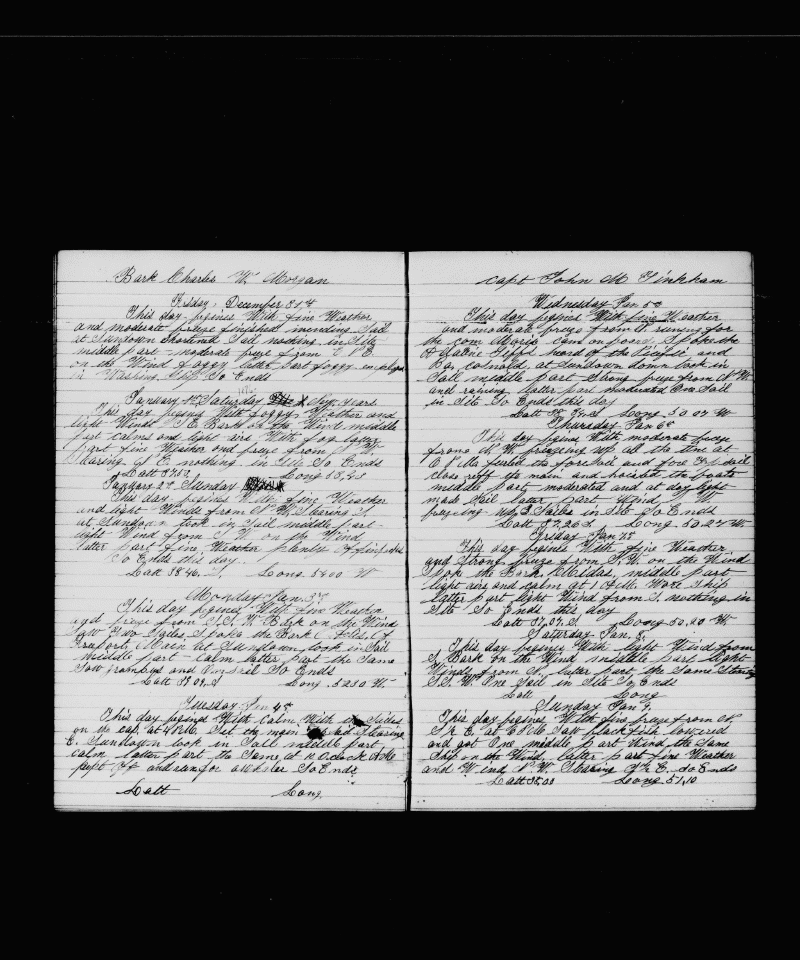 Bark Charles W. Morgan
Friday, December 31st
This day begines With fine Weather
and moderate breze finished mending Sail
at Sundown shortend Sail nothing in Site
middle part moderate breze from E N E
on the Wind foggy latter part foggy employed
in Washing Ship So Ends
January 1st Saturday New years
This day begines With foggy Wather and
light Winds S E Bark on the Wind middle
part calms and light airs With fog latter
part fine Weather and breze from
Stearing nothing in Site So Ends
Latt 37,52 Long 53,43
January 2d Sunday
This day begines With fine Weather
and light Winds from N W Stearing S
at Sundown took in Sail middle part
light Wind from S W on the Wind
latter part fine Weather plenty of finbacks
So Ends this day
Latt 38,46 S. Long. 54,00 W
Monday Jan 3d
This day begines With fine Weather
and breze from S,S, W Bark on the Wind
Saw Two Sailes Spoke the Bark
Main at Sundown took in Sail
middle part Calm latter part the Same
Saw Grampus and So Ends
Latt 38 04 S Long. 52 50 W.
Tuesday Jan 4th
This day begines With Calm With Sides
on the cap, at 4 P.M. Set the main Stearing
E. Sundown took in Sail middle part
Calm latter part the Same, at o Clock A M
kept off and run for a Whaler So Ends
Latt Long.
capt John M Tinkham
Wednesday Jan 5th
This day begines With fine Weather
and moderate breze from runing for
the com Morris cam on board, Spoke the
heard of the Pacific and
Gosnold, at Sundown down took in
Sail middle part Strong breze from N W.
and raining latter part moderated One Sail
in Site So Ends this day
Latt S Long. 50 07 W
Thursday Jan 6th
This day begins With moderate breze
from N W breezing up all the time at
furled the foresail and fore Topsail
close reeft the main and hoisted the boats
middle part moderated and at day light
made Sail latter part Wind S W
breezing up 3 Sailes in Site So Ends
Latt 37,26 S Long. 50 27 W
Friday Jan 7th
This day begines With fine Weather
and Strong breze from S, W. on the Wind
Spok the Bark middle part
light airs and calm at 1 A M. Wore Ship
latter part light Wind from S nothing in
Site So Ends this day
Latt 37,07. S Long 50,20 W.
Saturday Jan 8.
This day begines With light Wind from
S Bark on the Wind middle part light
Winds from S. latter part the Same Stearing
S.S. W. One Sail in Site So Ends
Latt Long
Sunday Jan 9.
This day begines With fine breze from N W
S & E. at Saw blackfish lowered
and got One middle part Wind the Same
Ship on the Wind, latter part fine Weather
and Wind N. W. Stearing S & E. So Ends
Latt 38,00 Long 51,10